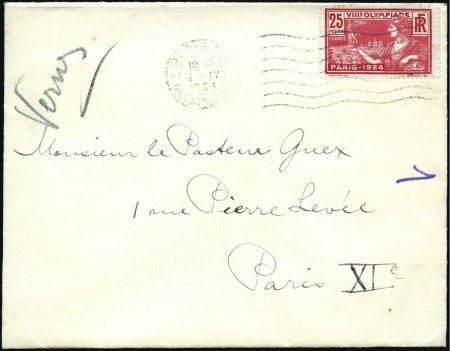 25 VIIIᴱ OLYMPIADE RF
PARIS-1924
PARIS
19
1 - IV
1924
Vernes
Monsieur le Pasteur Guex
1 rue Pierre Levée
Paris XIᵉ